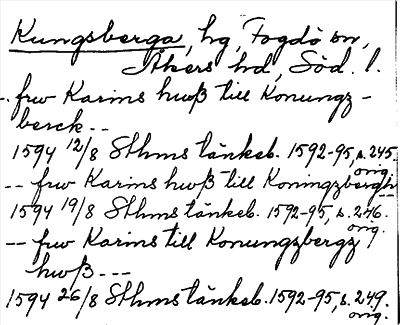 Kungsberga, hg, Fogdö sn,
Åkers hd, Söd. l.
-- frw Karins hwß till Konungz-
berck --
1594 12/8 Sthms tänkeb. 1592-95, s. 245.
orig.
-- frw Karins hwß till Koningzbergh
--
1594 19/8 Sthms tänkeb. 1592-95, s. 246.
orig.
-- frw Karins till Konungzbergz
hwß ---
1594 26/8 Sthms tänkeb. 1592-95, s. 249.
orig.